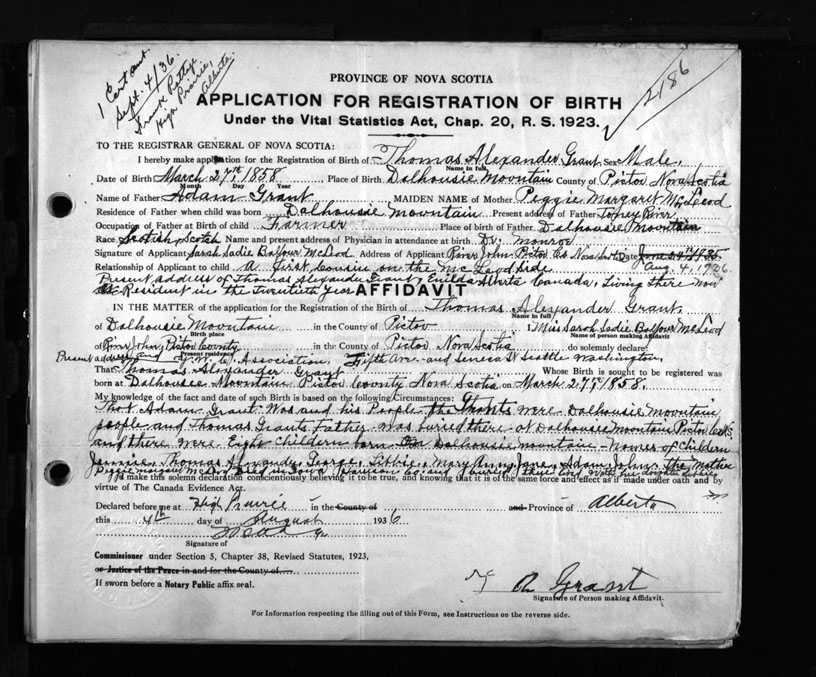 1 Cert out.
Sept. 4/36.
Frank
High Prairie,
Alberta.
2186
PROVINCE OF NOVA SCOTIA
APPLICATION FOR REGISTRATION OF BIRTH
Under the Vital Statistics Act, Chap. 20, R. S. 1923.
TO THE REGISTRAR GENERAL OF NOVA SCOTIA:
I hereby make application for the Registration of Birth of Thomas Alexander Grant Sex Male.
Name in full
Date of Birth March 27th, 1858 Place of Birth Dalhousie Mountain County of Pictou Nova Scotia
Month Day Year
Name of Father Adam Grant MAIDEN NAME of Mother Peggie Margaret McLeod
Residence of Father when child was born Dalhousie Mountain Present address of Father Toney River
Occupation of Father at Birth of Child Farmer Place of birth of Father Dalhousie Mountain
Race Scotish, Scotch Name and present address of Physician in attendance at birth Dr. Monroe
Signature of Applicant Sarah Sadie Balfour McLeod Address of Applicant River John Pictou Co. Nova Scotia Date
Relationship of Applicant to child A First Cousin on the McLeod Side Aug 4, 1936
Present address of Thomas Alexander Grant, Alberta Canada, Living there now
Resident in the twentieth year
AFFIDAVIT
IN THE MATTER of the application for the Registration of the Birth of Thomas Alexander Grant
Name in full
of Dalhousie Mountain in the County of Pictou I, Miss Sarah Sadie Balfour McLeod
Birth place Name of person making Affidavit
of River John, Pictou County in the County of Pictou Nova Scotia do solemnly declare:
Present residence
Present address Y. W. C. Association, Fifth Ave and Seneca St Seattle Washington
That Thomas Alexander Grant Whose Birth is sought to be registered was
born at Dalhousie Mountain Pictou County Nova Scotia on March 27th, 1858.
My knowledge of the fact and date of such Birth is based on the following Circumstances:
That Adam Grant Was and his People the Grants were Dalhousie Mountain
people and Thomas Grants Father was buried there at Dalhousie Mountain Pictou
and there were Eight Childern born on Dalhousie mountain Names of Childern
Jennie, Thomas Alexander, George, Libbie, Mary Ann, Jane, Adam, John, the Mother
Peggie Margaret McLeod Died in Iowa
I make this solemn declaration conscientiously believing it to be true, and knowing that it is of the same force and effect as if made under oath and by
virtue of The Canada Evidence Act.
Declared before me at High Prairie in the County of and Province of Alberta
this 4th day of August 1936
Signature of
Commissioner under Section 5, Chapter 38, Revised Statutes, 1923,
or Justice of the Peace in and for the County of
If sworn before a Notary Public affix seal.
Grant
Signature of Person making Affidavit.
For Information respecting the filling out of this Form, see Instructions on the reverse side.